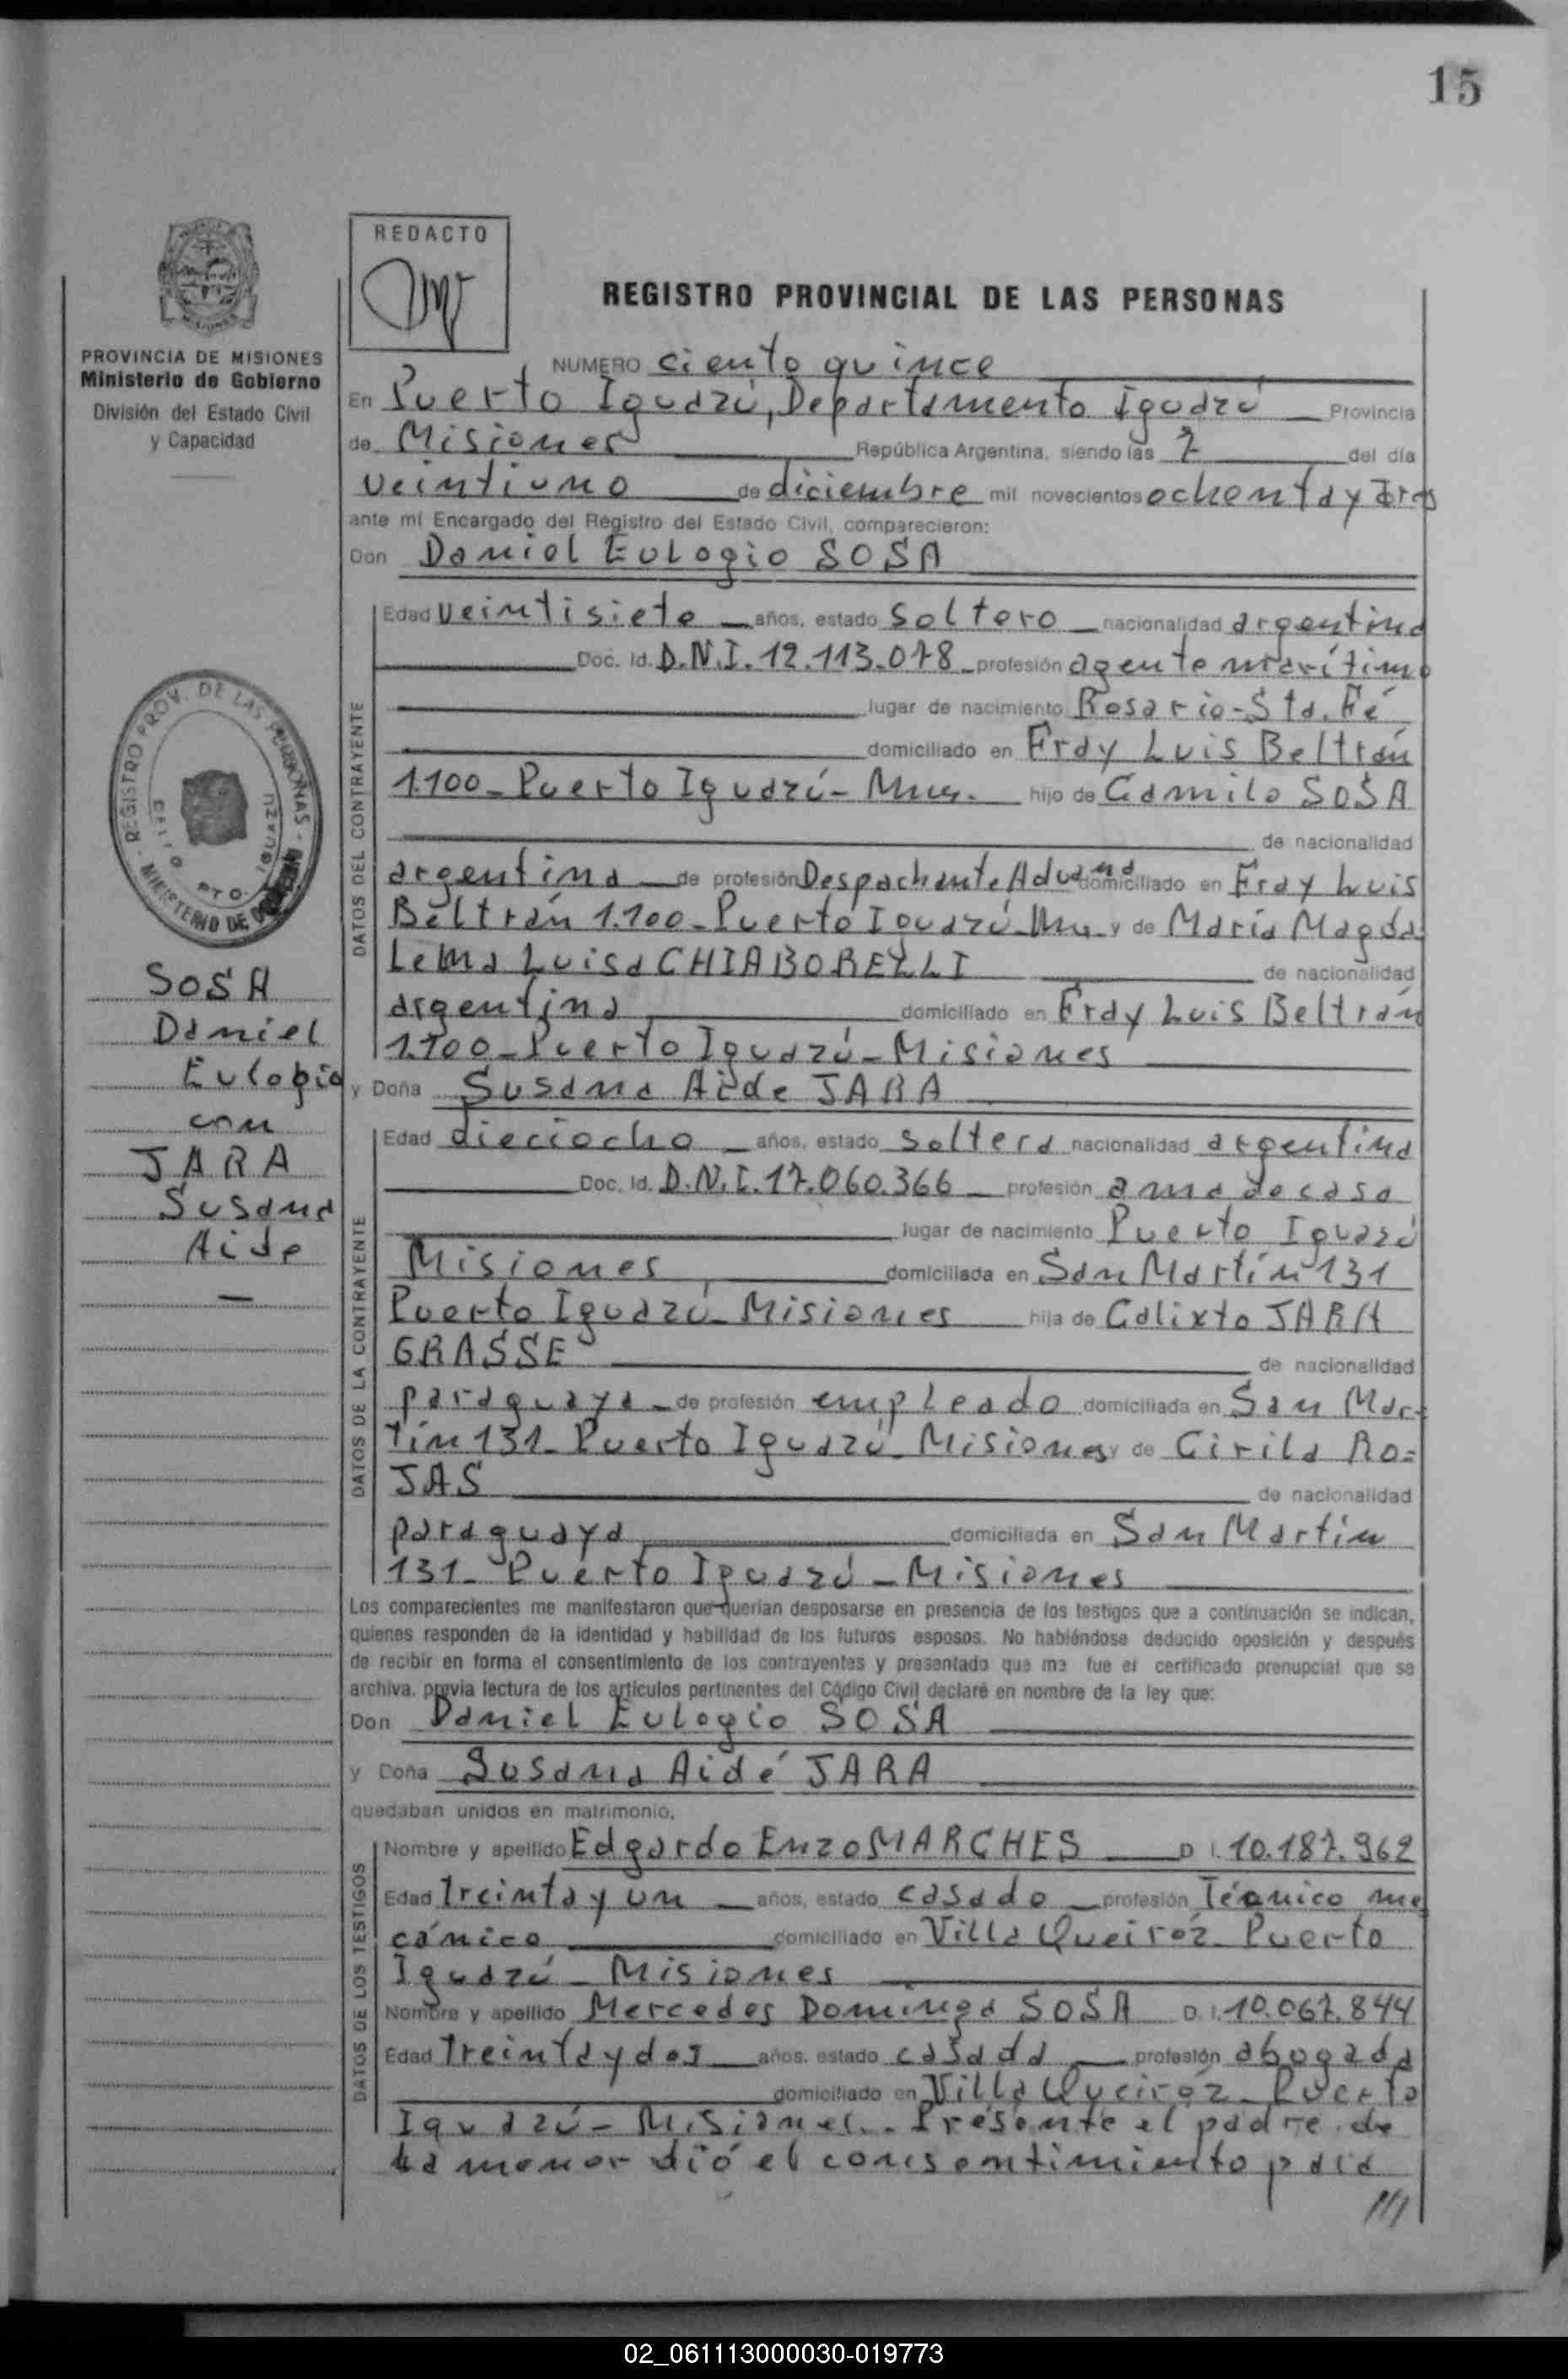 15
REDACTO
REGISTRO PROVINCIAL DE LAS PERSONAS
PROVINCIA DE MISIONES
Ministerio de Gobierno
División del Estado Civil
y Capacidad
REGISTRO PROV. DE LAS PERSONAS - MINISTERIO DE
PTO. IGUAZU
SOSA
Daniel
Eulogio
con
JARA
Susana
Aide
NUMERO ciento quince
En Puerto Iguazú, Departamento Iguazú Provincia
de Misiones República Argentina, siendo las 7 del día
veintiuno de diciembre mil novecientos ochenta y tres
ante mi Encargado del Registro del Estado Civil, comparecieron:
Don Daniel Eulogio SOSA
DATOS DEL CONTRAYENTE
Edad veintisiete años, estado soltero nacionalidad argentina
Doc. Id. D.N.I. 12.113.078 profesión agente marítimo
lugar de nacimiento Rosario - Sta. Fé
domiciliado en Fray Luis Beltrán
1.100 - Puerto Iguazú - Mnes. hijo de Camilo SOSA
de nacionalidad
argentina de profesión Despachante Aduana domiciliado en Fray Luis
Beltrán 1.100 - Puerto Iguazú y de María Magda
Lena Luisa CHIABORELLI de nacionalidad
argentina domiciliado en Fray Luis Beltrán
1.100 - Puerto Iguazú - Misiones
y Doña Susana Aide JARA
DATOS DE LA CONTRAYENTE
Edad dieciocho años, estado soltera nacionalidad argentina
Doc. Id. D.N.I. 17.060.366 profesión ama de casa
lugar de nacimiento Puerto Iguazú
Misiones domiciliada en San Martín 131
Puerto Iguazú - Misiones hija de Calixto JARA
GRASSE de nacionalidad
paraguaya de profesión empleado domiciliada en San Mar-
tín 131 - Puerto Iguazú - Misiones y de Cirila RO=
JAS de nacionalidad
paraguaya domiciliada en San Martin
131 - Puerto Iguazú - Misiones
Los comparecientes me manifestaron que querían desposarse en presencia de los testigos que a continuación se indican,
quienes responden de la identidad y habilidad de los futuros esposos. No habiéndose deducido oposición y después
de recibir en forma el consentimiento de los contrayentes y presentado que me fue el certificado prenupcial que se
archiva, previa lectura de los artículos pertinentes del Código Civil declaré en nombre de la ley que:
Don Daniel Eulogio SOSA
y Doña Susana Aidé JARA
quedaban unidos en matrimonio.
DATOS DE LOS TESTIGOS
Nombre y apellido Edgardo Enzo MARCHES D.I. 10.187.962
Edad treinta y un años, estado casado profesión Técnico me
cánico domiciliado en Villa Queiróz - Puerto
Iguazú - Misiones
Nombre y apellido Mercedes Dominga SOSA D.I. 10.067.844
Edad treinta y dos años, estado casada profesión abogada
domiciliado en Villa Queiróz - Puerto
Iguazú - Misiones. - Presente el padre de
la menor dió el consentimiento para
///
02_061113000030-019773